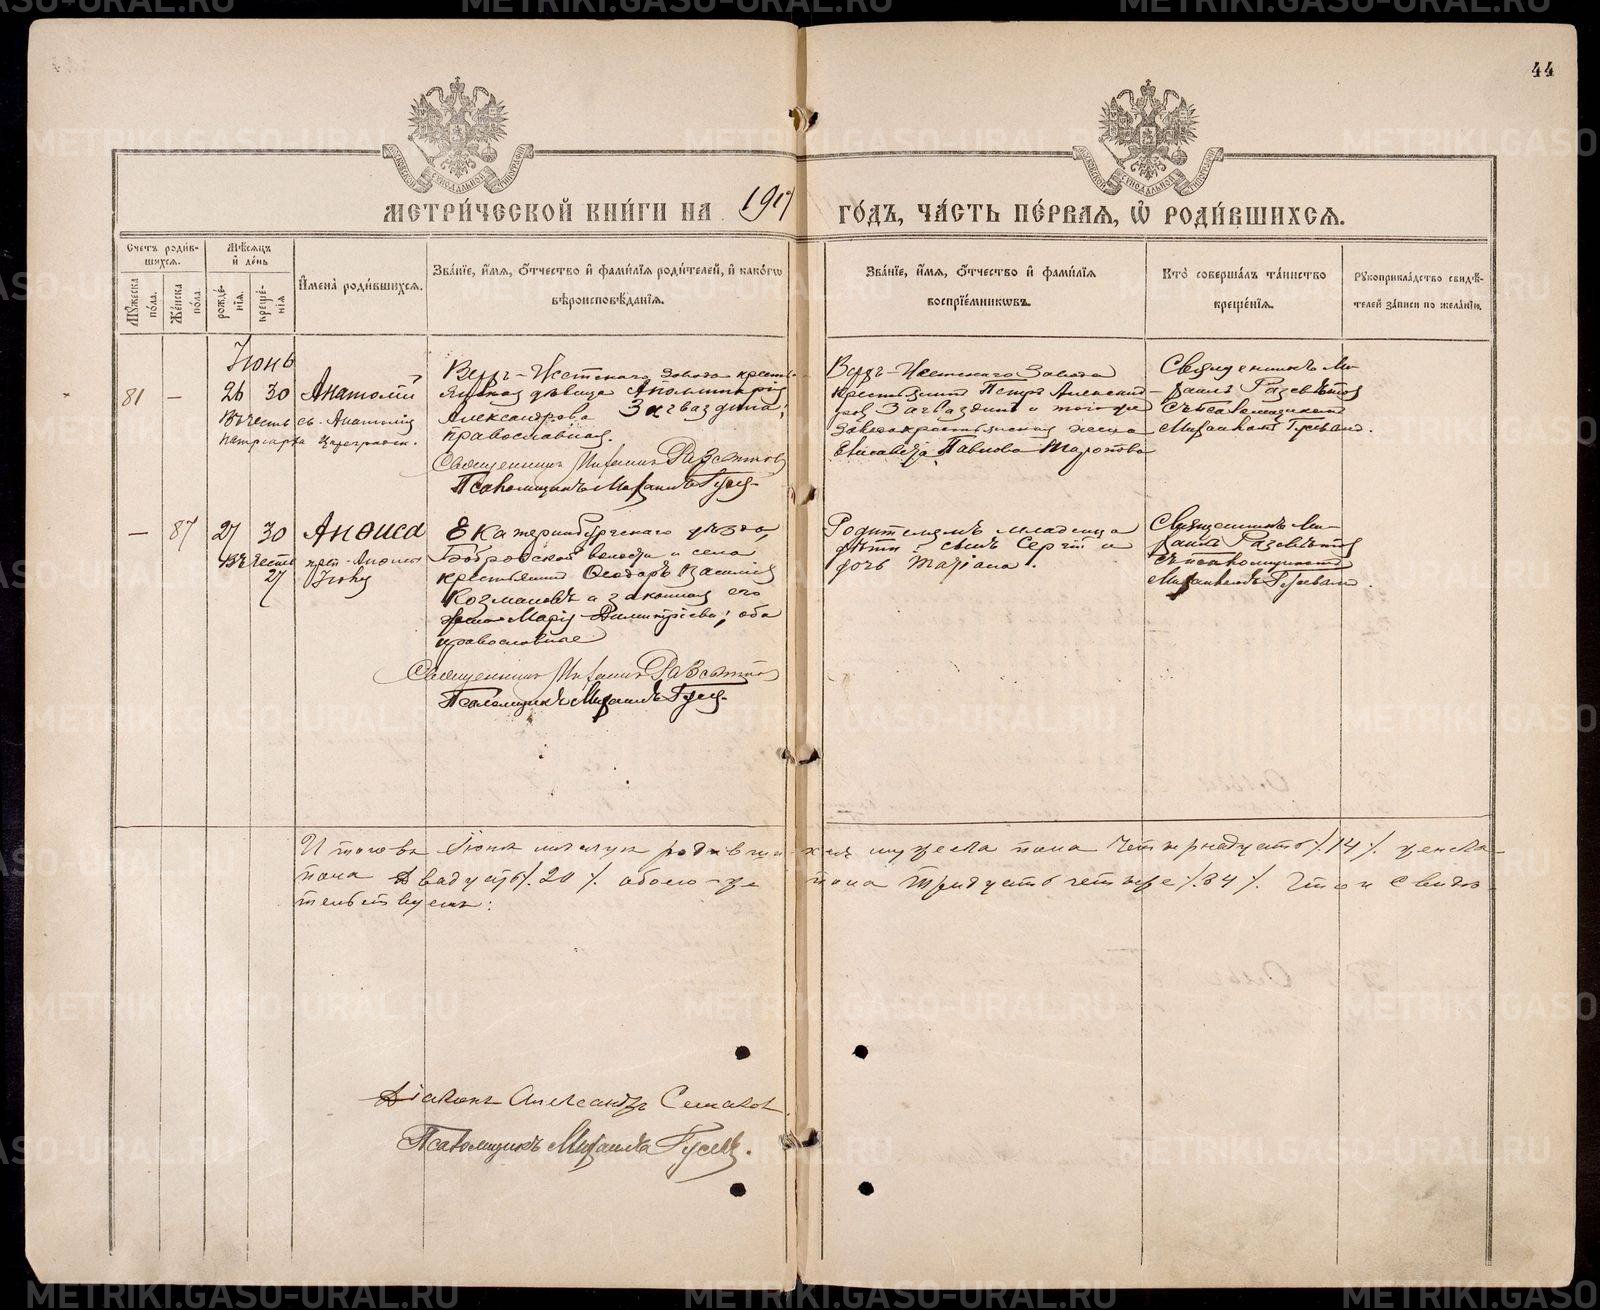 44
МЕТРИ́ЧЕСКОЙ КНИ́ГИ НА 1917 ГО́ДЪ, ЧА́СТЬ ПЕ́РВАЯ, Ѡ҆ РОДИ́ВШИХСЯ.
Счетъ роди́в-
шихся.
Мꙋжеска по́ла.
Же́нска по́ла
Мѣ́сяцъ и де́нь
рожде́-
нїѧ.
креще́-
нїѧ
И҆мена̀ роди́вшихся.
Зва́нїе, и҆́мѧ, ѻ҆́тчество и҆ фами́лїѧ роди́телей, и҆ како́гѡ
вѣроисповѣ́данїѧ.
Зва́нїе, и҆́мѧ, ѻ҆́тчество и҆ фами́лїѧ
воспрїе́мникѡвъ.
Кто̀ соверша́лъ та́инство
креще́нїѧ.
Рꙋкоприкла́дство свидѣ́-
телей за́писи по жела́нїю.
Іюнь
81 — 26 30 Анатолій
Въ честь св. Анатолія
патріарха Цареградск.
Верх-Исетскаго завода кресть-
янская дѣвица Аполлинарія
Александрова Загваздина;
православная.
Священникъ Михаилъ
Псаломщикъ Михаилъ Гусев
Верх-Исетскаго Завода
крестьянин Петръ Александ-
ров Загваздинъ и того-же
завода крестьянская жена
Елисавета Павлова
Священникъ Ми-
хаилъ
съ псаломщикомъ
Михаиломъ Гусевым.
— 87 27 30 Анѳиса
Въ честь прп. Анѳисы
27 Іюля
Екатеринбургскаго уѣзда,
Бобровской волости и села
крестьянинъ Ѳеодоръ Василіев
Козмановъ и законная его
жена Марія Димитріева; оба
православные
Священникъ Михаилъ
Псаломщикъ Михаилъ Гусев
Родителямъ младенца
дѣти: сынъ Сергій и
дочь Маріана.
Священникъ Ми-
хаилъ
съ псаломщикомъ
Михаиломъ Гусевым.
Итого въ Іюнѣ мѣсяцѣ родившихся мужеска пола четырнадцать /.14/. женска-
пола двадцать /.20/. обоего-же пола тридцать четыре /.34/. Что и свидѣ-
тельствуемъ:
Діаконъ Александръ
Псаломщикъ Михаилъ Гусевъ.
METRIKI.GASO-URAL.RU